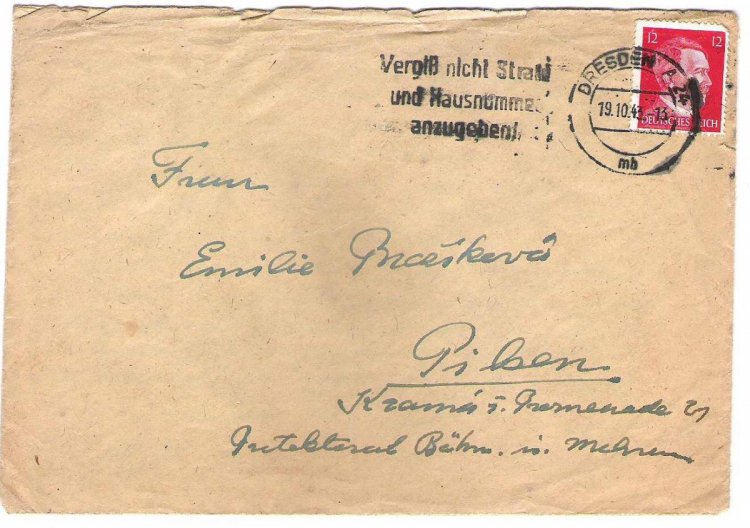 Vergiß nicht Straße
und Hausnummer
anzugeben!
DRESDEN A 24
19.10.43.-13
mb
12 12
DEUTSCHES REICH
Frau
Emilie
Pilsen
Promenade 21
Protektorat Böhm. u. Mähren